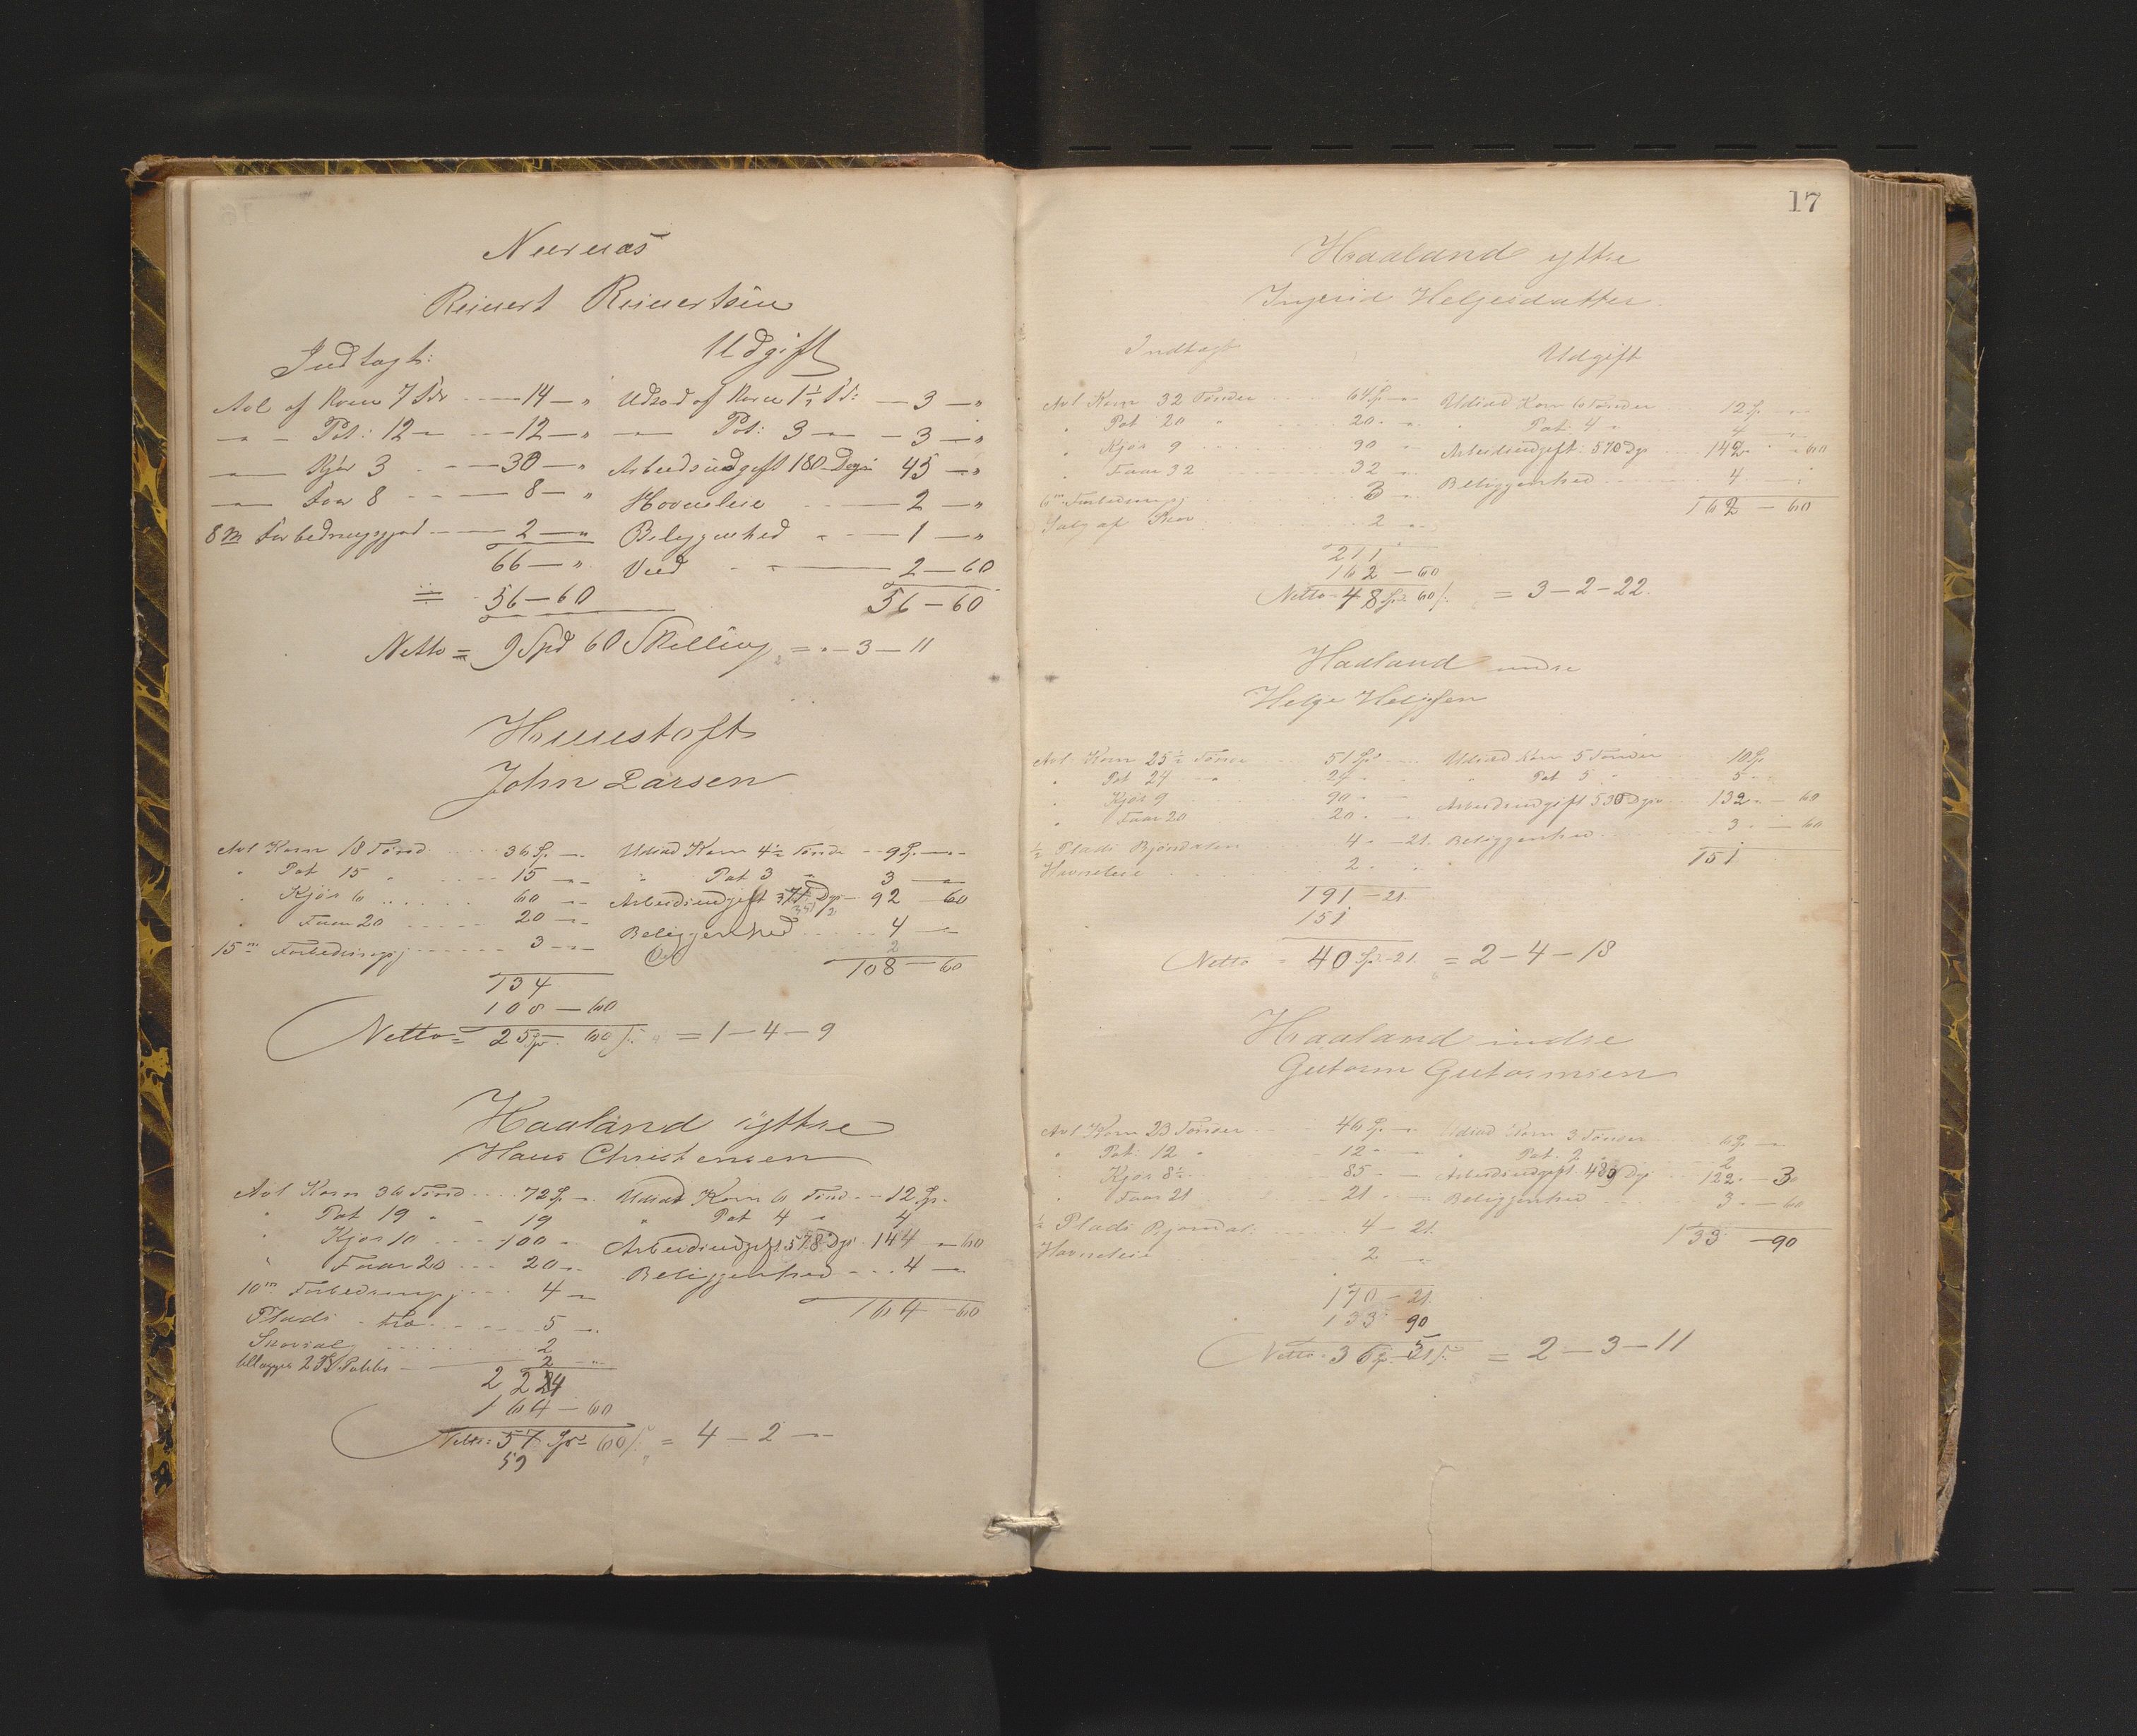 Reinert Reinertsen
Indtægt: Udgift
Avl af Korn 7 Tdr 14 — " Udsæd af Korn 1½ Td: 3 — "
— " — Pot: 12 — " 12 — " — Pot: 3 — " — 3 — "
— Kjør 3 30 — " Arbeidsudgift 180 Dage 45 — "
— Faar 8 8 — " Havneleie 2 — "
8 m Forbedringsjord 2 — " Beliggenhed 1 — "
66 — " Ved 2 — 60
÷ 56 — 60 56 — 60
Netto = 9 Spd 60 Skilling = " — 3 — 11
John Larsen
Avl Korn 18 Tønd 36 Sp. — Udsæd Korn 4½ Tønd 9 Sp. —
" Pot 15 " 15 — " Pot 3 " 3 —
" Kjør 6 60 — Arbeidsudgift 371 Dge 92 — 60
" Faar 20 20 — Beliggenhed 4 —
15 m Forbedringsj 3 — 2
134 108 — 60
108 — 60
Netto = 25 Sp. 60 s. = 1 — 4 — 9
Haaland yttre
Hans Christensen
Avl Korn 36 Tønd 72 Sp. — Udsæd Korn 6 Tønd 12 Sp.
" Pot 19 " 19 " Pot 4 " 4
" Kjør 10 100 " Arbeidsudgift 578 Dge 144 — 60
" Faar 20 20 " Beliggenhed 4 —
10 m Forbedringsj 4 — 164 — 60
Plads 5 —
Skovsalg 2
tillægges 2 Td Poteter 2 — "
224
164 — 60
Netto = 57 Sp. 60 s. = 4 — 2 — "
59
17
Haaland yttre
Ingerid Heljesdatter
Indtægt Udgift
Avl Korn 32 Tønder 64 Sp. — Udsæd Korn 6 Tønder 12 Sp. —
" Pot 20 " 20 " " Pot: 4 " 4 "
" Kjør 9 90 " Arbeidsudgift: 570 Dge 142 — 60
" Faar 32 32 " Beliggenhed 4 — "
6 m Forbedringsj 3 " 162 — 60
Salg af Skov 2 —
211
162 — 60
Netto = 48 Sp. 60 s. = 3 — 2 — 22.
Haaland indre
Helge Helgesen
Avl Korn 25½ Tønder 51 Sp. Udsæd Korn 5 Tønder 10 Sp.
" Pot 24 — " 24 " " Pot 5 " 5 "
" Kjør 9 90 " Arbeidsudgift 530 Dge 132 " — 60
" Faar 20 20 " Beliggenhed 3 " — 60
½ Plads Bjørndalen 4 — 21. 151
Havneleie 2 "
191 — 21.
151
Netto = 40 Sp. 21. = 2 — 4 — 18
Haaland indre
Gutorm Gutormsen
Avl Korn 23 Tønder 46 Sp. — Udsæd Korn 3 Tønder 6 Sp. —
" Pot: 12 " 12 " " Pot. 2 " 2
" Kjør 8½ 85 " Arbeidsudgift 489 Dge 122 " — 30
" Faar 21 21 " Beliggenhed 3 " — 60
½ Plads Bjørndal. 4 — 21. 133 — 90
Havneleie 2 "
170 — 21.
133 90
Netto = 36 Sp. 51 s. = 2 — 3 — 11